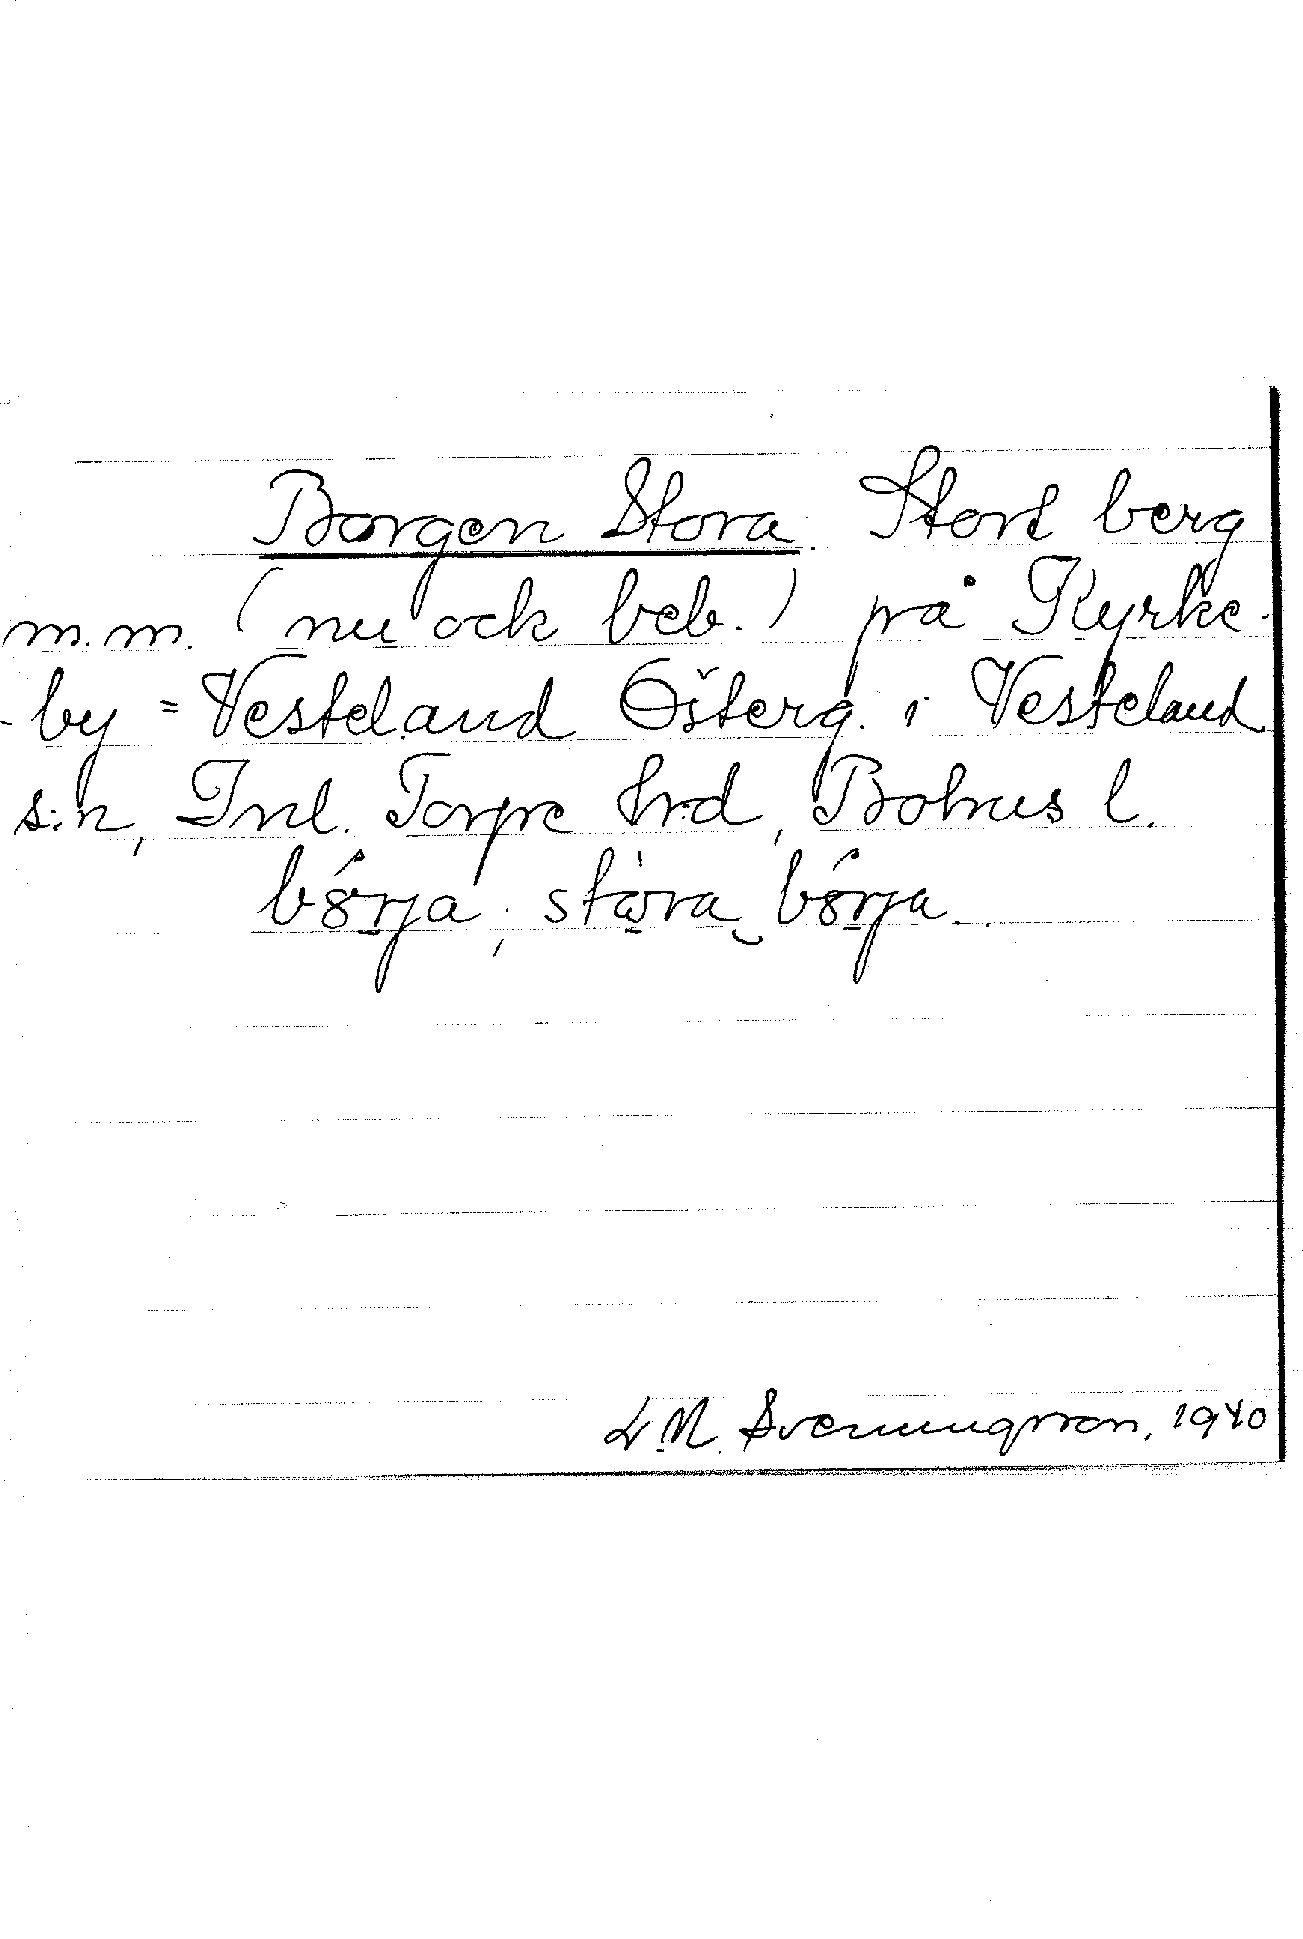 Borgen Stora. Stort berg
m.m. (nu ock beb.) på Kyrke-
-by = Vesteland Österg. i Vesteland
s:n, Inl. Torpe hrd, Bohus l.
bórja; stòra bórja.
L.N. Svenungsson, 1940